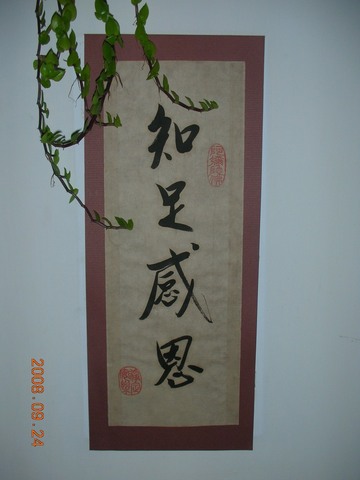 知足感恩
2008.09.24